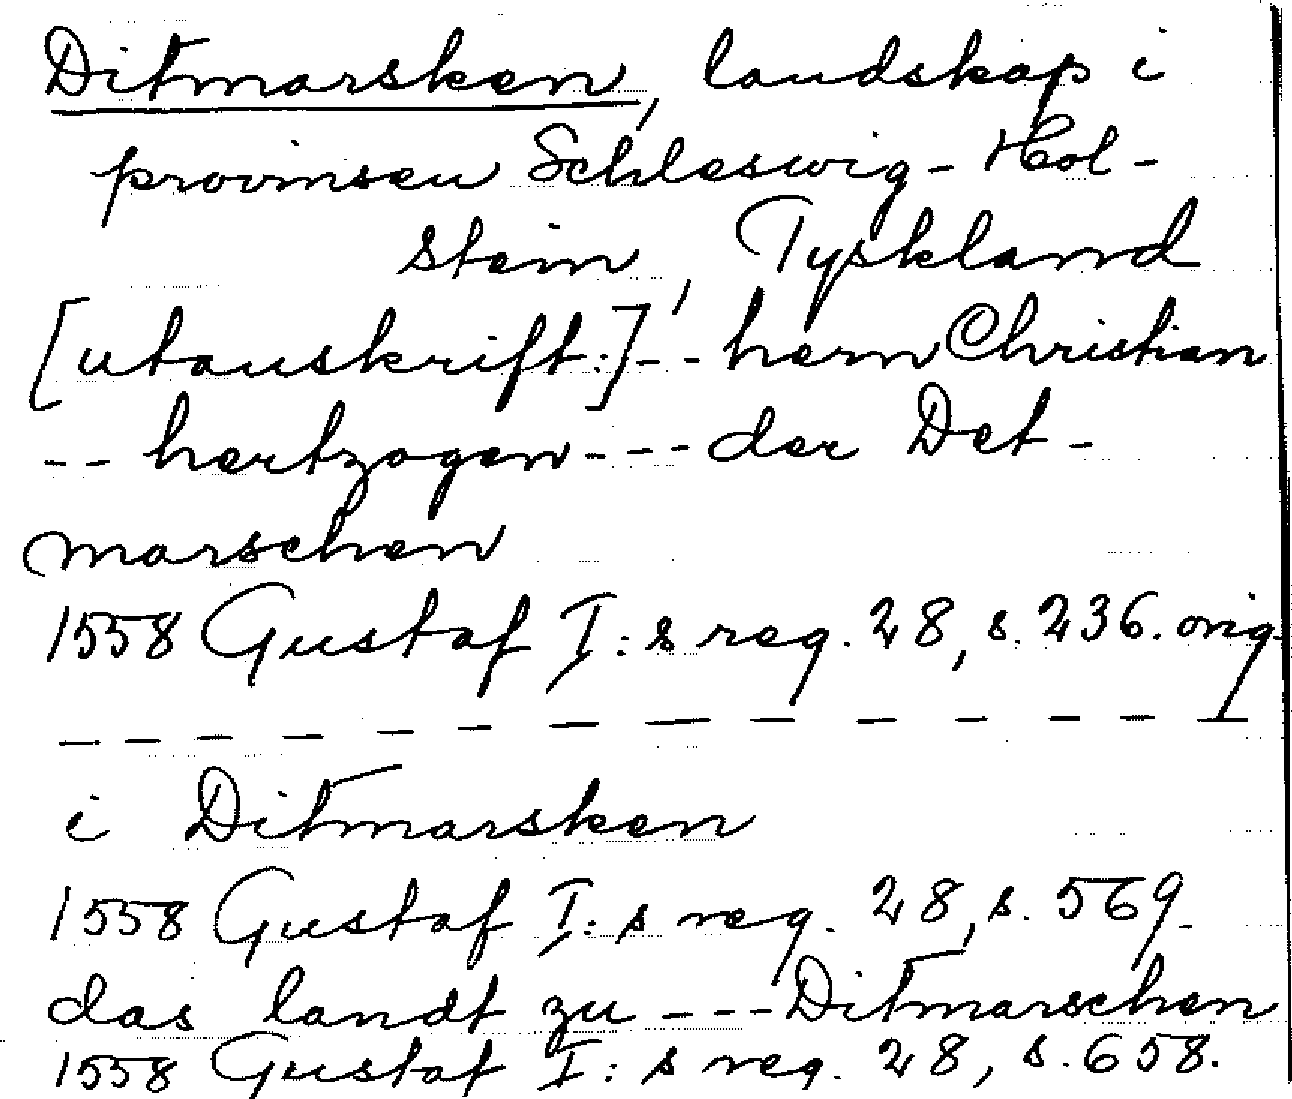 Ditmarsken, landskap i
provinsen Schleswig-Hol-
stein, Tyskland
[utanskrift:]--- hern Christian
-- hertzogen --- der Det-
marschen
1558 Gustaf I:s reg. 28, s. 236. orig.
— — — — — — — — — — — — —
i Ditmarsken
1558 Gustaf I:s reg. 28, s. 569.
das landt zu --- Ditmarschen
1558 Gustaf I:s reg. 28, s. 658.